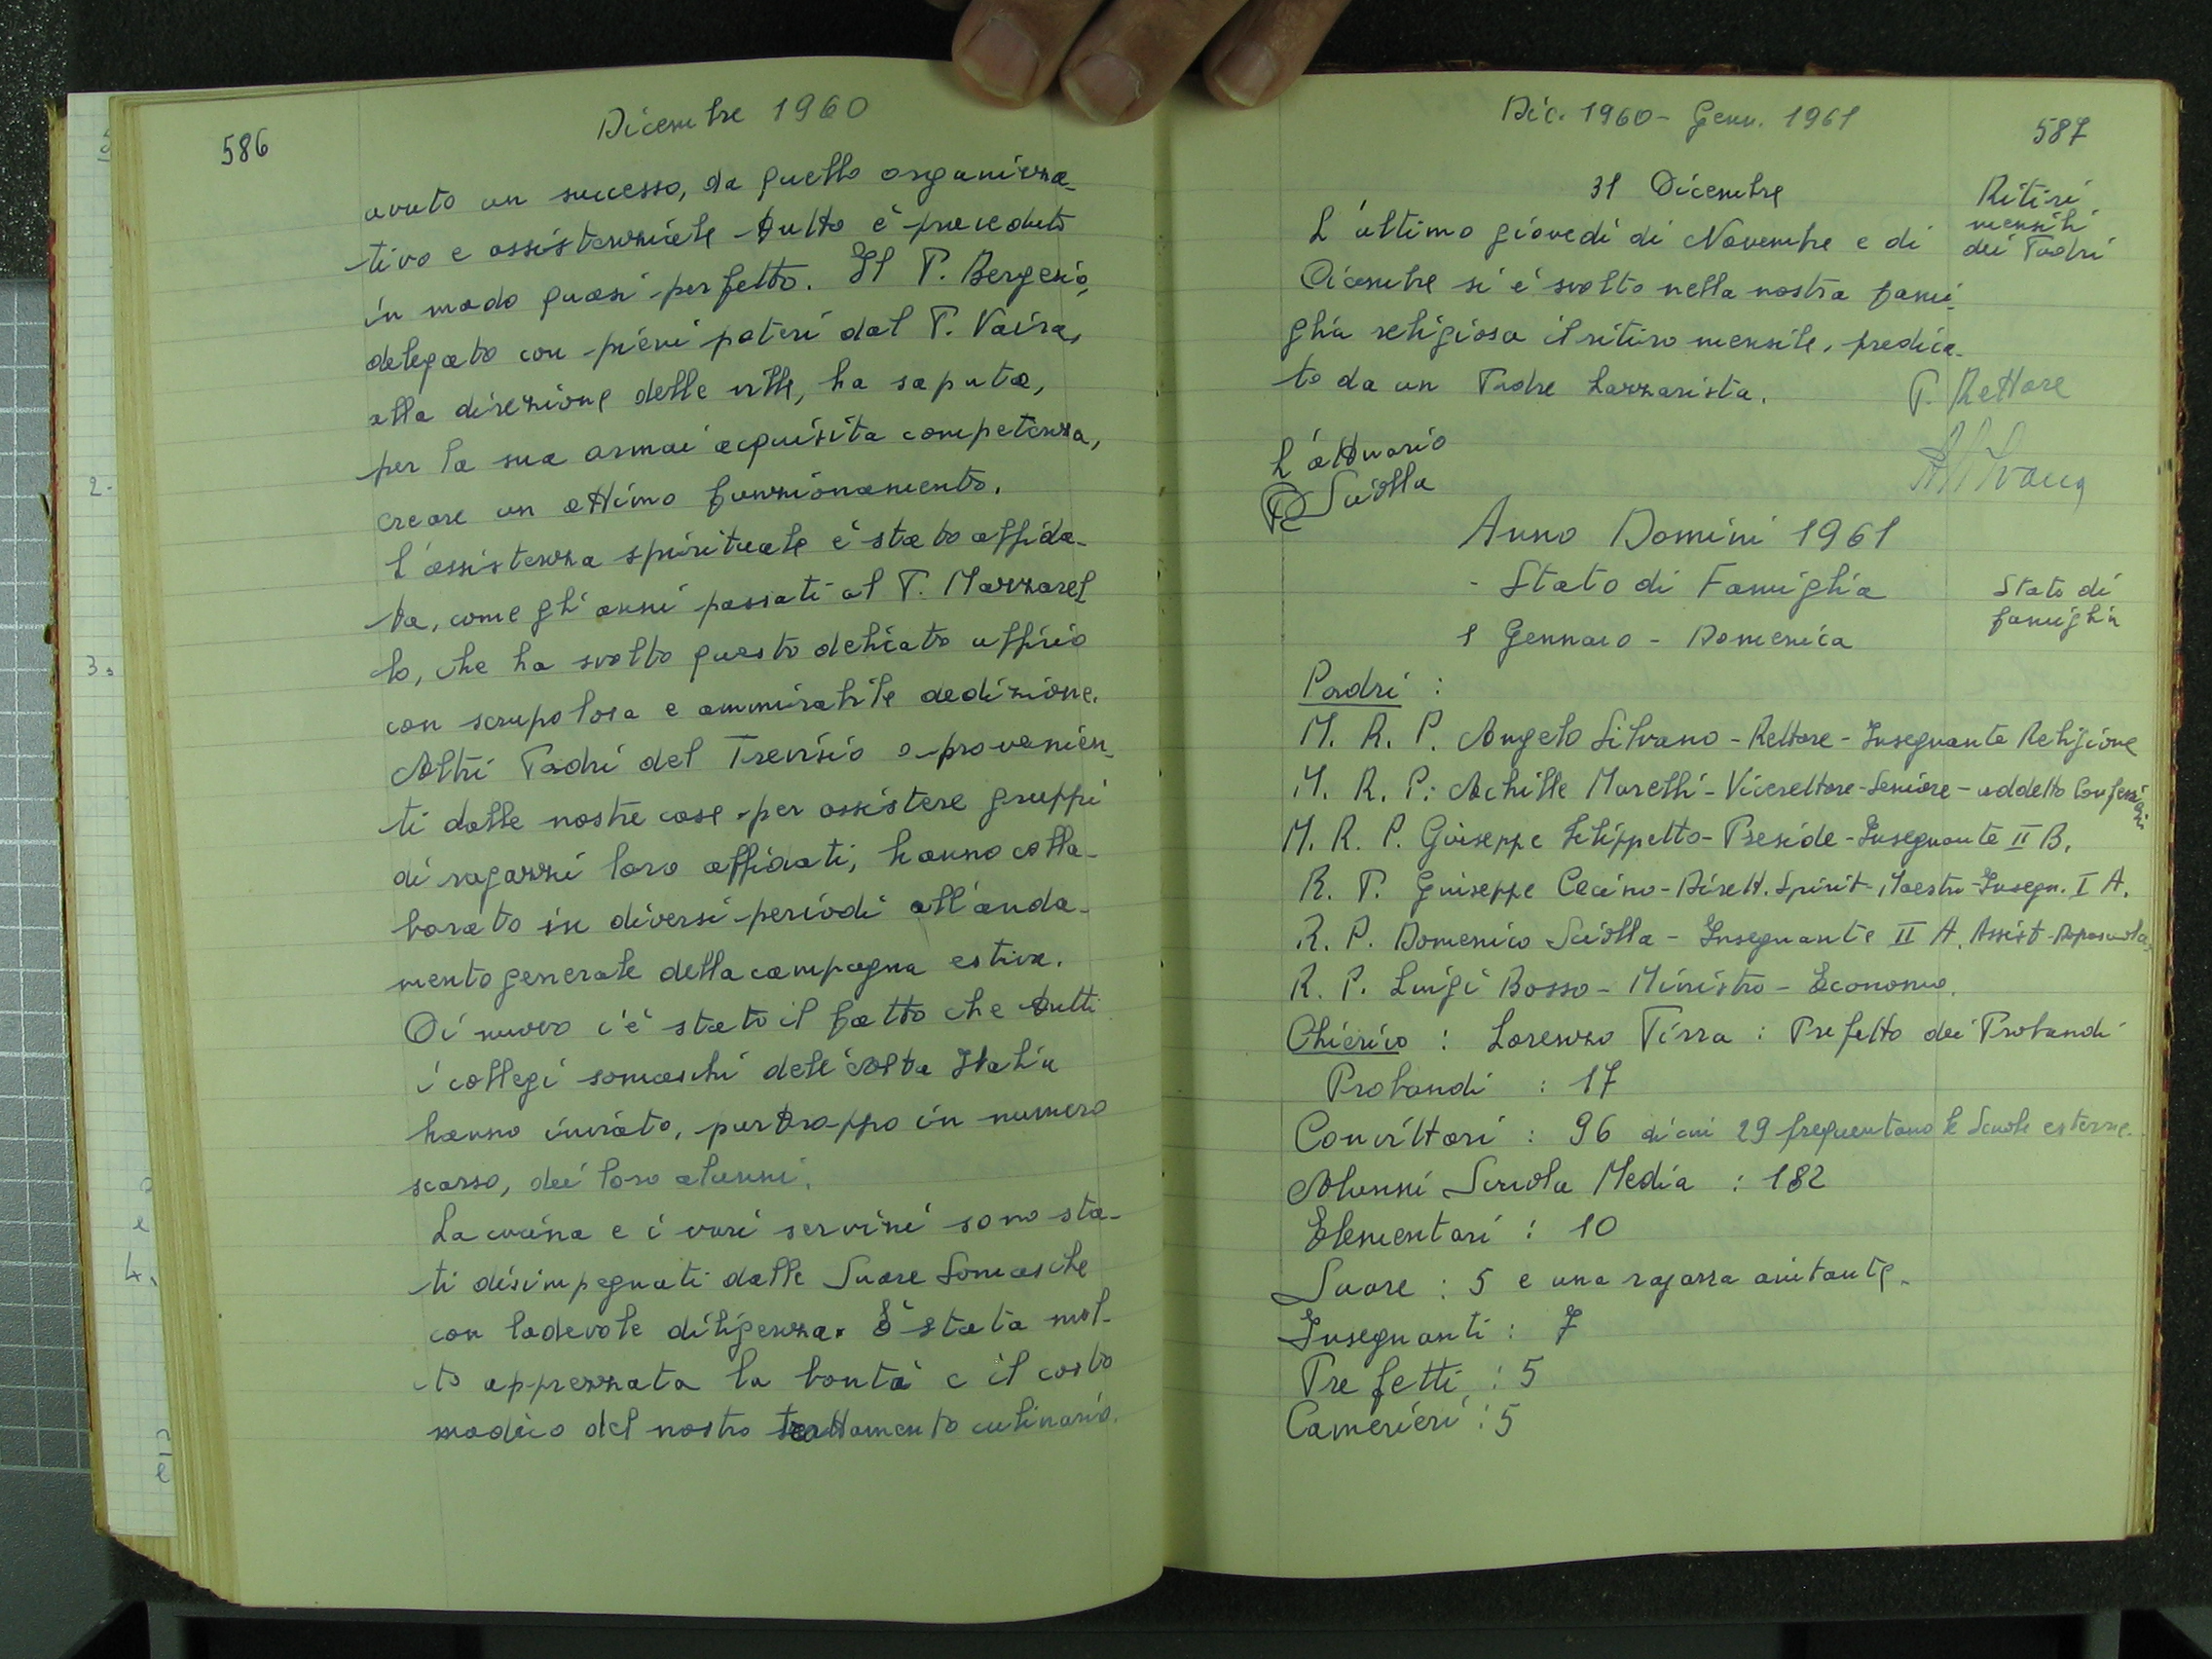 586
Dicembre 1960
avuto un successo, da quello organizza-
tivo e assistenziale tutto è proceduto
in modo quasi perfetto. Il P. Bergesio,
delegato con pieni poteri dal P. Vaira,
alla direzione delle ville, ha saputo,
per la sua ormai acquisita competenza,
creare un ottimo funzionamento.
L'assistenza spirituale è stata affida-
ta, come gli anni passati al P. Mazzarel
lo, che ha svolto questo delicato ufficio
con scrupolosa e ammirabile dedizione.
Altri Padri del Trevisio o provenien-
ti dalle nostre case per assistere gruppi
di ragazzi loro affidati, hanno colla-
borato in diversi periodi all'anda-
mento generale della campagna estiva.
Di nuovo c'è stato il fatto che tutti
i collegi somaschi dell'alta Italia
hanno inviato, purtroppo in numero
scarso, dei loro alunni.
La cucina e i vari servizi sono sta-
ti disimpegnati dalle Suore Somasche
con lodevole diligenza. È stata mol-
to apprezzata la bontà e il costo
modico del nostro trattamento culinario.
Dic. 1960 - Genn. 1961
587
31 Dicembre
Ritiri
mensili
dei Padri
L'ultimo giovedì di Novembre e di
Dicembre si è svolto nella nostra fami-
glia religiosa il ritiro mensile, predica-
to da un Padre Lazzarista.
P. Rettore
L'attuario
P. Sciolla
Anno Domini 1961
- Stato di Famiglia
Stato di
famiglia
1 Gennaio - Domenica
Padri :
M. R. P. Angelo Silvano - Rettore - Insegnante Religione
M. R. P. Achille Marelli - Vicerettore - Seniore - addetto Confessioni
M. R. P. Giuseppe Filippetto - Preside - Insegnante II B.
R. P. Giuseppe Cacino - Dirett. Spirit - Maestro - Insegn. I A.
R. P. Domenico Sciolla - Insegnante II A, Assist. Doposcuola
R. P. Luigi Bosso - Ministro - Economo.
Chierico : Lorenzo Pirra : Prefetto dei Probandi
Probandi : 17
Convittori : 96 di cui 29 frequentano le Scuole esterne.
Alunni Scuola Media : 182
Elementari : 10
Suore : 5 e una ragazza aiutante.
Insegnanti : 7
Prefetti : 5
Camerieri : 5